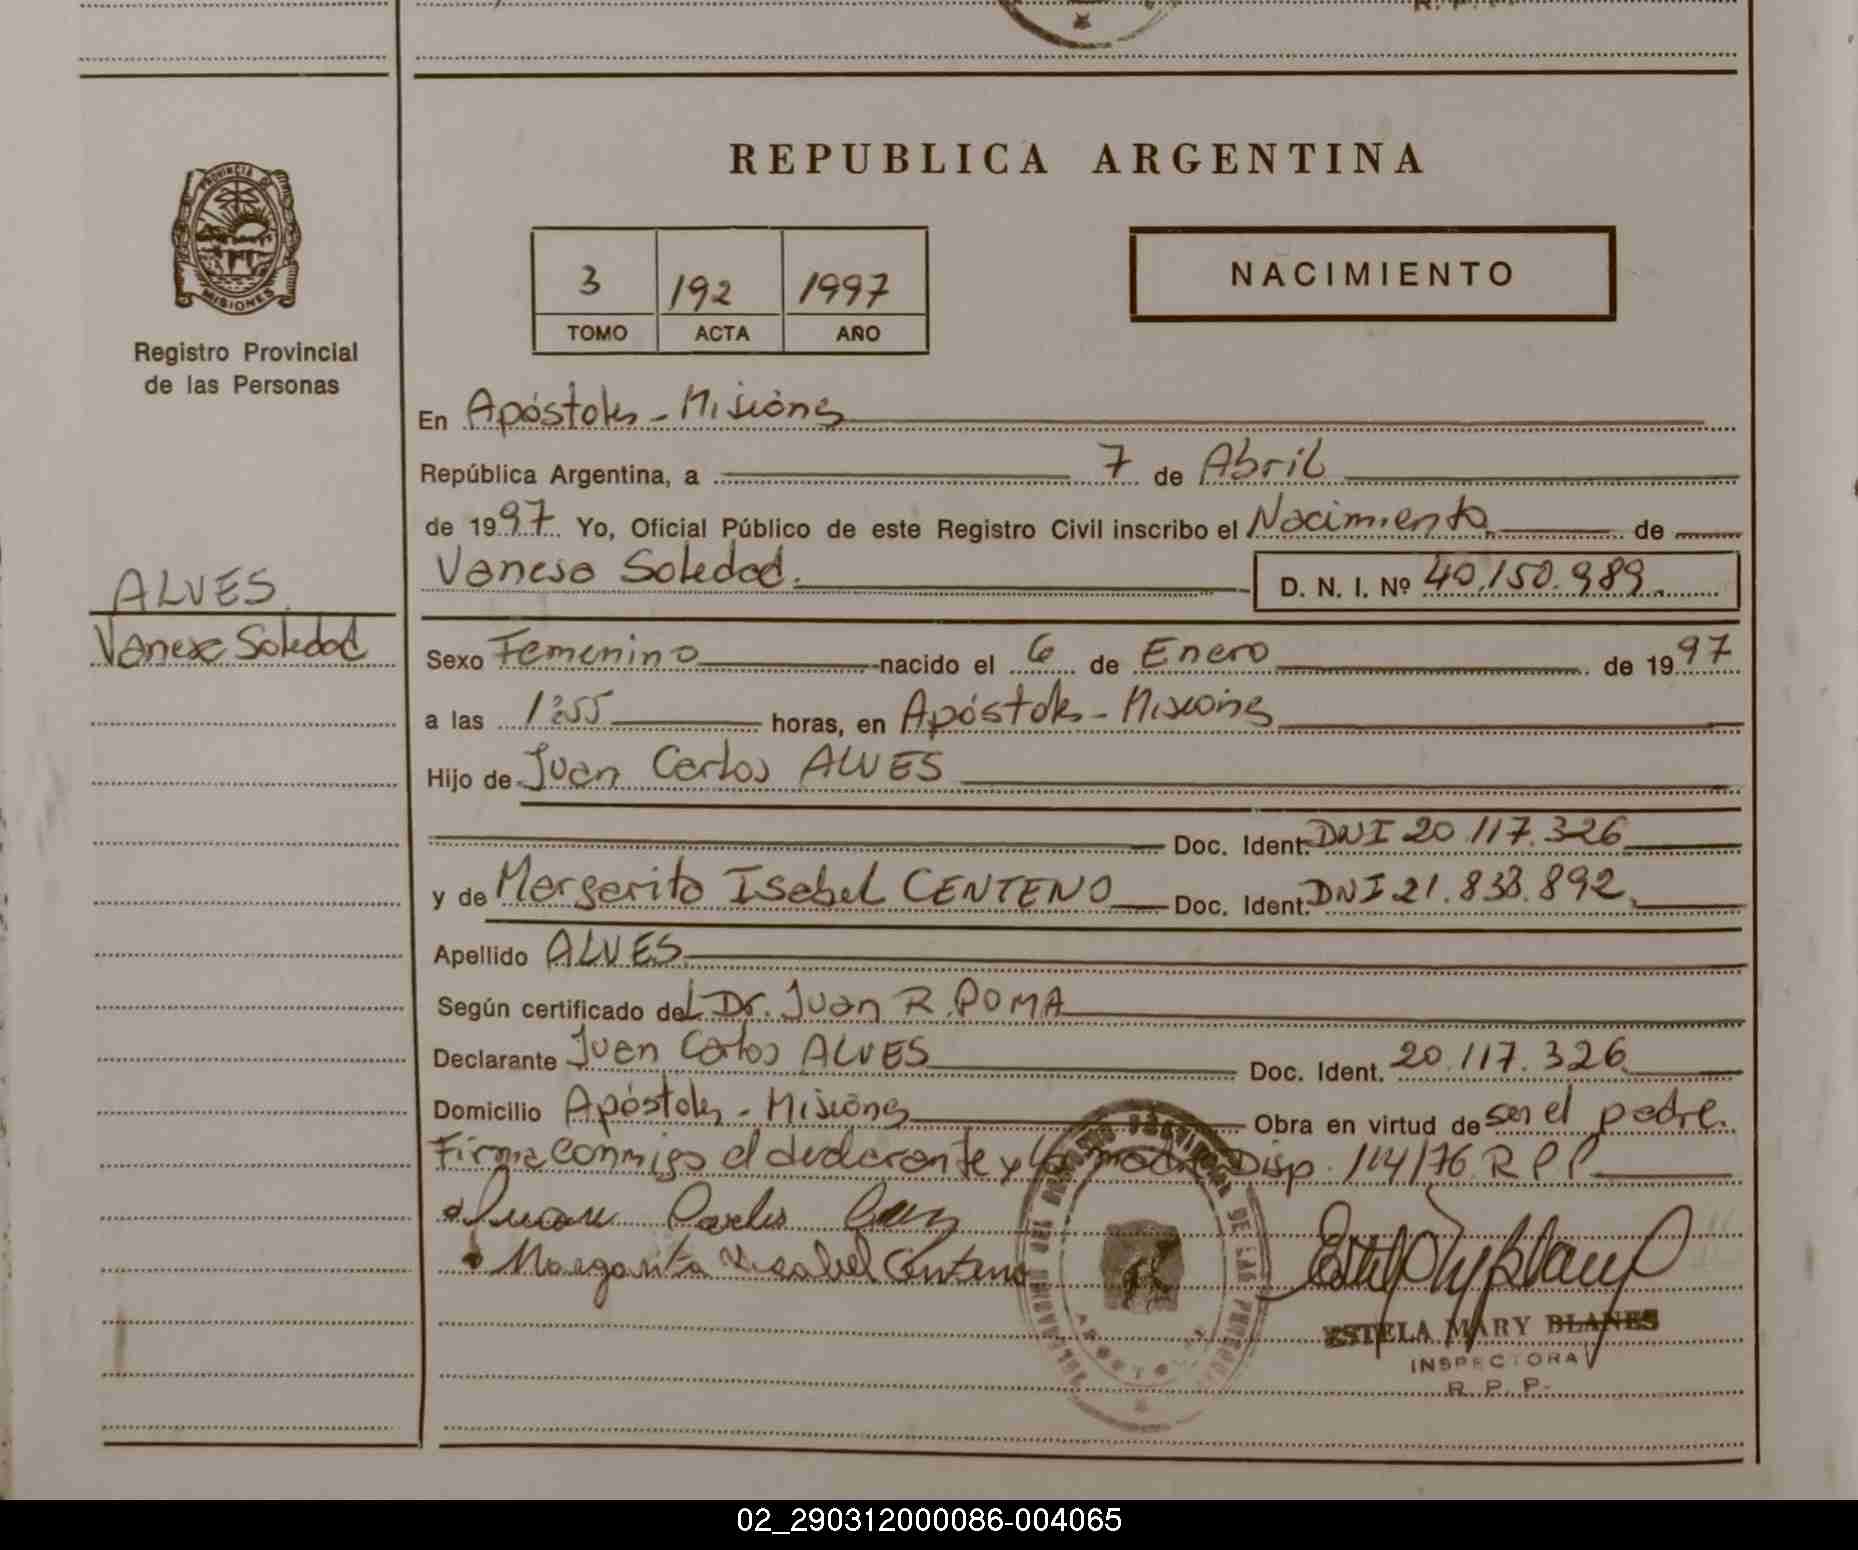 R. P. P.
PROVINCIA DE
MISIONES
Registro Provincial
de las Personas
REPUBLICA ARGENTINA
3 192 1997
TOMO ACTA AÑO
NACIMIENTO
En Apóstoles - Misiones
República Argentina, a 7 de Abril
de 1997 Yo, Oficial Público de este Registro Civil inscribo el Nacimiento de
Vanesa Soledad. D. N. I. Nº 40.150.989
ALVES
Vanesa Soledad
Sexo Femenino nacido el 6 de Enero de 1997
a las 1:55 horas, en Apóstoles - Misiones
Hijo de Juan Carlos ALVES
Doc. Ident. DNI 20.117.326
y de Margarita Isabel CENTENO Doc. Ident. DNI 21.838.892
Apellido ALVES
Según certificado del Dr. Juan R. POMA
Declarante Juan Carlos ALVES Doc. Ident. 20.117.326
Domicilio Apóstoles - Misiones Obra en virtud de ser el padre.
Firma conmigo el declarante y la madre Disp. 114/76 R P P
Juan Carlos
Margarita Ysabel Centeno
ESTELA MARY BLANES
INSPECTORA
R. P. P.
02_290312000086-004065